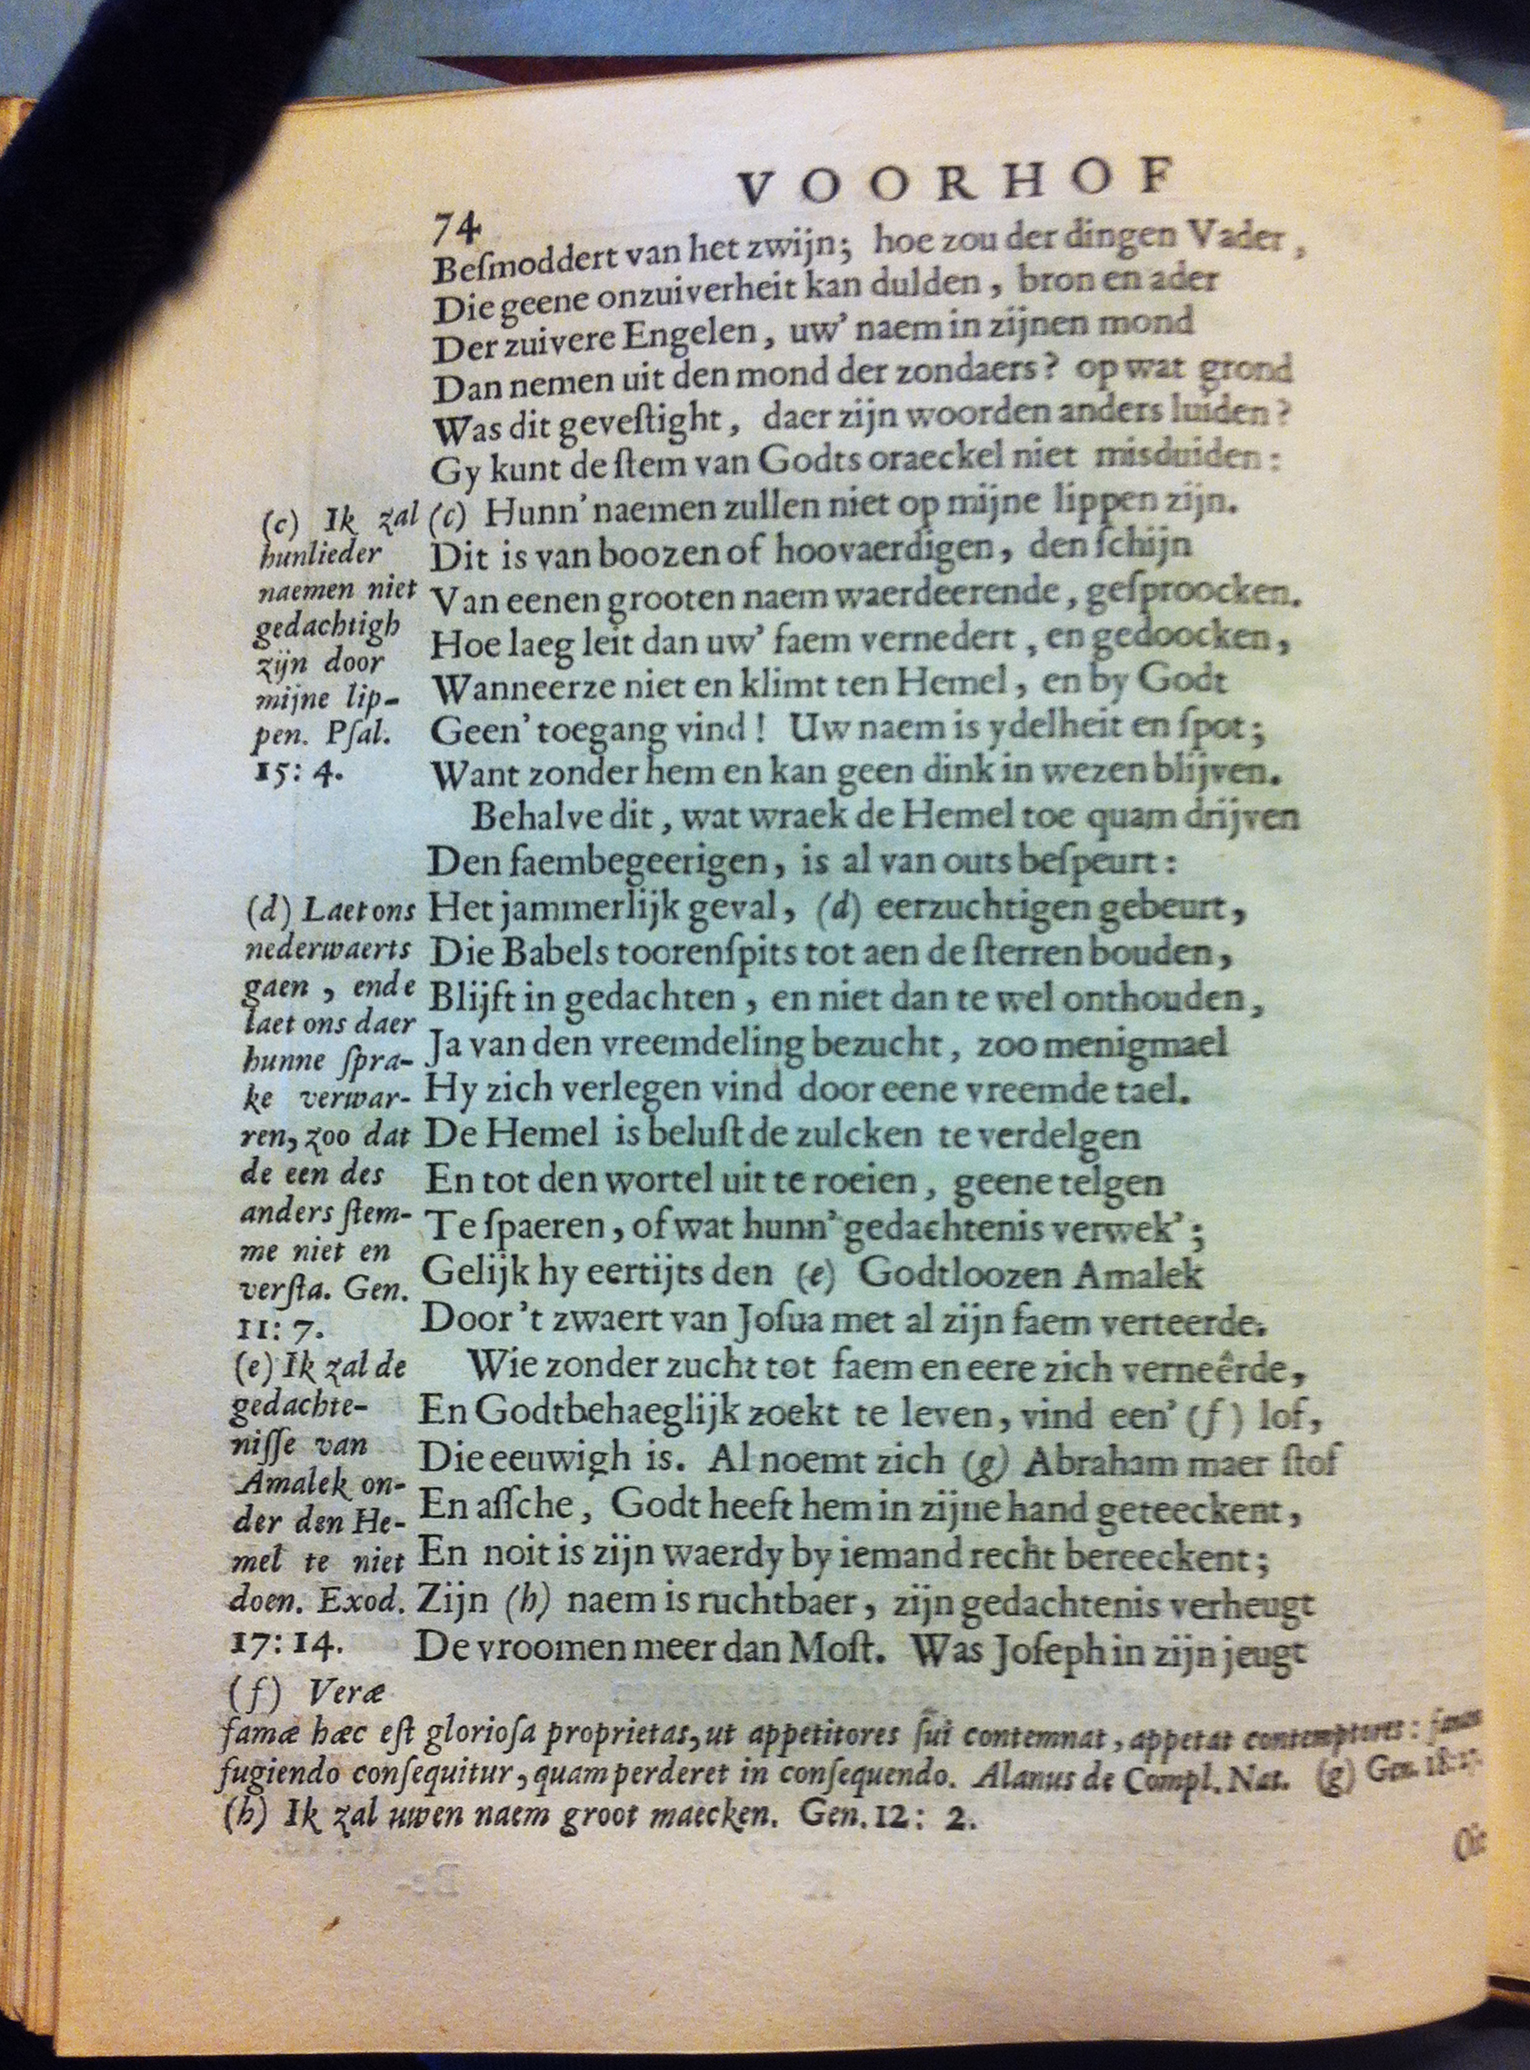 VOORHOF
74
Beſmoddert van het zwijn; hoe zou der dingen Vader,
Die geene onzuiverheit kan dulden, bron en ader
Der zuivere Engelen, uw' naem in zijnen mond
Dan nemen uit den mond der zondaers? op wat grond
Was dit geveſtight, daer zijn woorden anders luiden?
Gy kunt de ſtem van Godts oraeckel niet misduiden:
(c) Hunn' naemen zullen niet op mijne lippen zijn.
Dit is van boozen of hoovaerdigen, den ſchijn
Van eenen grooten naem waerdeerende, geſproocken.
Hoe laeg leit dan uw' faem vernedert, en gedoocken,
Wanneerze niet en klimt ten Hemel, en by Godt
Geen' toegang vind! Uw naem is ydelheit en ſpot;
Want zonder hem en kan geen dink in wezen blijven.
Behalve dit, wat wraek de Hemel toe quam drijven
Den faembegeerigen, is al van outs beſpeurt:
Het jammerlijk geval, (d) eerzuchtigen gebeurt,
Die Babels toorenſpits tot aen de ſterren bouden,
Blijft in gedachten, en niet dan te wel onthouden,
Ja van den vreemdeling bezucht, zoo menigmael
Hy zich verlegen vind door eene vreemde tael.
De Hemel is beluſt de zulcken te verdelgen
En tot den wortel uit te roeien, geene telgen
Te ſpaeren, of wat hunn' gedachtenis verwek';
Gelijk hy eertijts den (e) Godtloozen Amalek
Door 't zwaert van Joſua met al zijn faem verteerde.
Wie zonder zucht tot faem en eere zich verneêrde,
En Godtbehaeglijk zoekt te leven, vind een' (f) lof,
Die eeuwigh is. Al noemt zich (g) Abraham maer ſtof
En aſſche, Godt heeft hem in zijne hand geteeckent,
En noit is zijn waerdy by iemand recht bereeckent;
Zijn (h) naem is ruchtbaer, zijn gedachtenis verheugt
De vroomen meer dan Moſt. Was Joſeph in zijn jeugt
(c) Ik zal
hunlieder
naemen niet
gedachtigh
zijn door
mijne lip-
pen. Pſal.
15: 4.
(d) Laet ons
nederwaerts
gaen, ende
laet ons daer
hunne ſpra-
ke verwar-
ren, zoo dat
de een des
anders ſtem-
me niet en
verſta. Gen.
11: 7.
(e) Ik zal de
gedachte-
niſſe van
Amalek on-
der den He-
mel te niet
doen. Exod.
17: 14.
(f) Veræ
famæ hæc eſt glorioſa proprietas, ut appetitores ſui contemnat, appetat contemptores: famam
fugiendo conſequitur, quam perderet in conſequendo. Alanus de Compl. Nat. (g) Gen. 18:
(h) Ik zal uwen naem groot maecken. Gen. 12: 2.